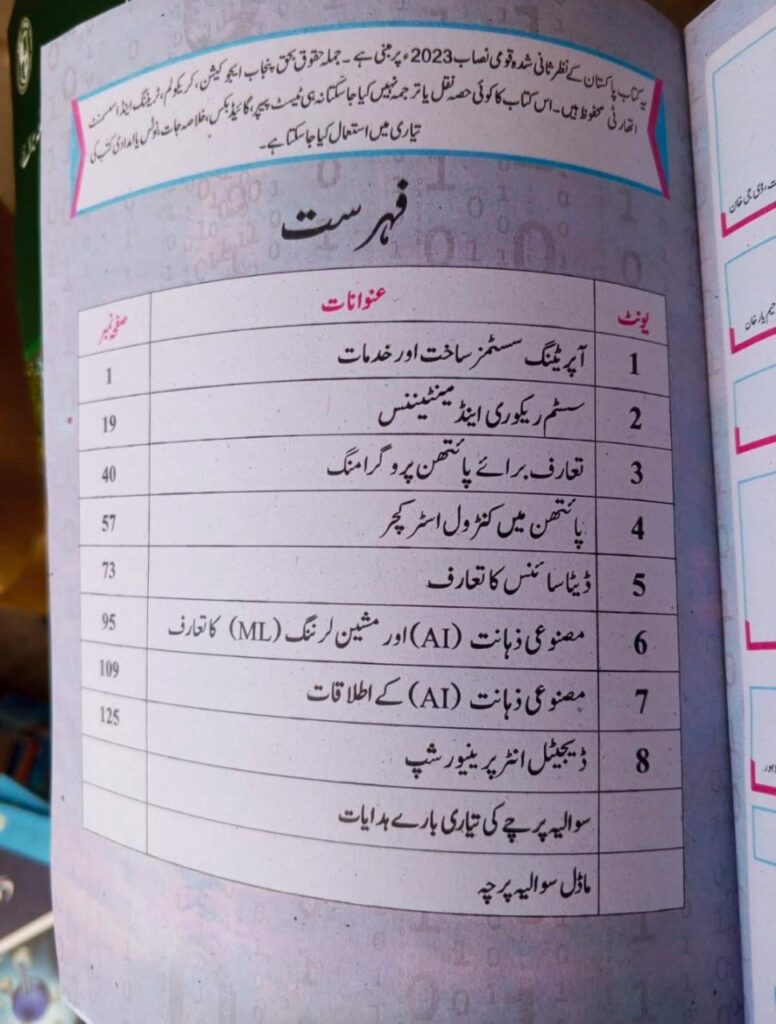 یہ کتاب پاکستان کے نظر ثانی شدہ قومی نصاب 2023ء پر مبنی ہے۔ جملہ حقوق بحق پنجاب ایجوکیشن، کریکولم، ٹریننگ اینڈ اسسمنٹ
اتھارٹی محفوظ ہیں۔ اس کتاب کا کوئی حصہ نقل یا ترجمہ نہیں کیا جا سکتا نہ ہی ٹیسٹ پیپرز، گائیڈ بکس، خلاصہ جات، نوٹس یا امدادی کتب کی
تیاری میں استعمال کیا جا سکتا ہے۔
فہرست
یونٹ عنوانات صفحہ نمبر
1 آپریٹنگ سسٹمز ساخت اور خدمات 1
2 سسٹم ریکوری اینڈ مینٹیننس 19
3 تعارف برائے پائتھن پروگرامنگ 40
4 پائتھن میں کنٹرول اسٹرکچر 57
5 ڈیٹا سائنس کا تعارف 73
6 مصنوعی ذہانت (AI) اور مشین لرننگ (ML) کا تعارف 95
7 مصنوعی ذہانت (AI) کے اطلاقات 109
8 ڈیجیٹل انٹرپرینیورشپ 125
سوالیہ پرچے کی تیاری بارے ہدایات
ماڈل سوالیہ پرچہ
ڈی جی خان
رحیم یار خان